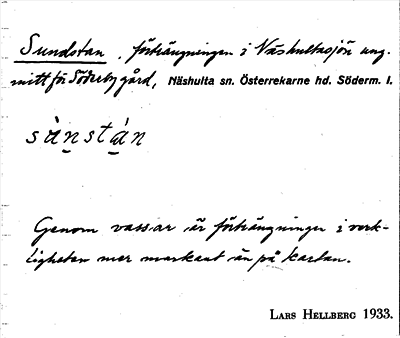 Sundstan, förträngningen i Näshultasjön ung.
mitt för Söderby gård, Näshulta sn. Österrekarne hd. Söderm. l.
sànstán
Genom vassar är förträngningen i verk-
ligheten mer markant än på kartan.
LARS HELLBERG 1933.